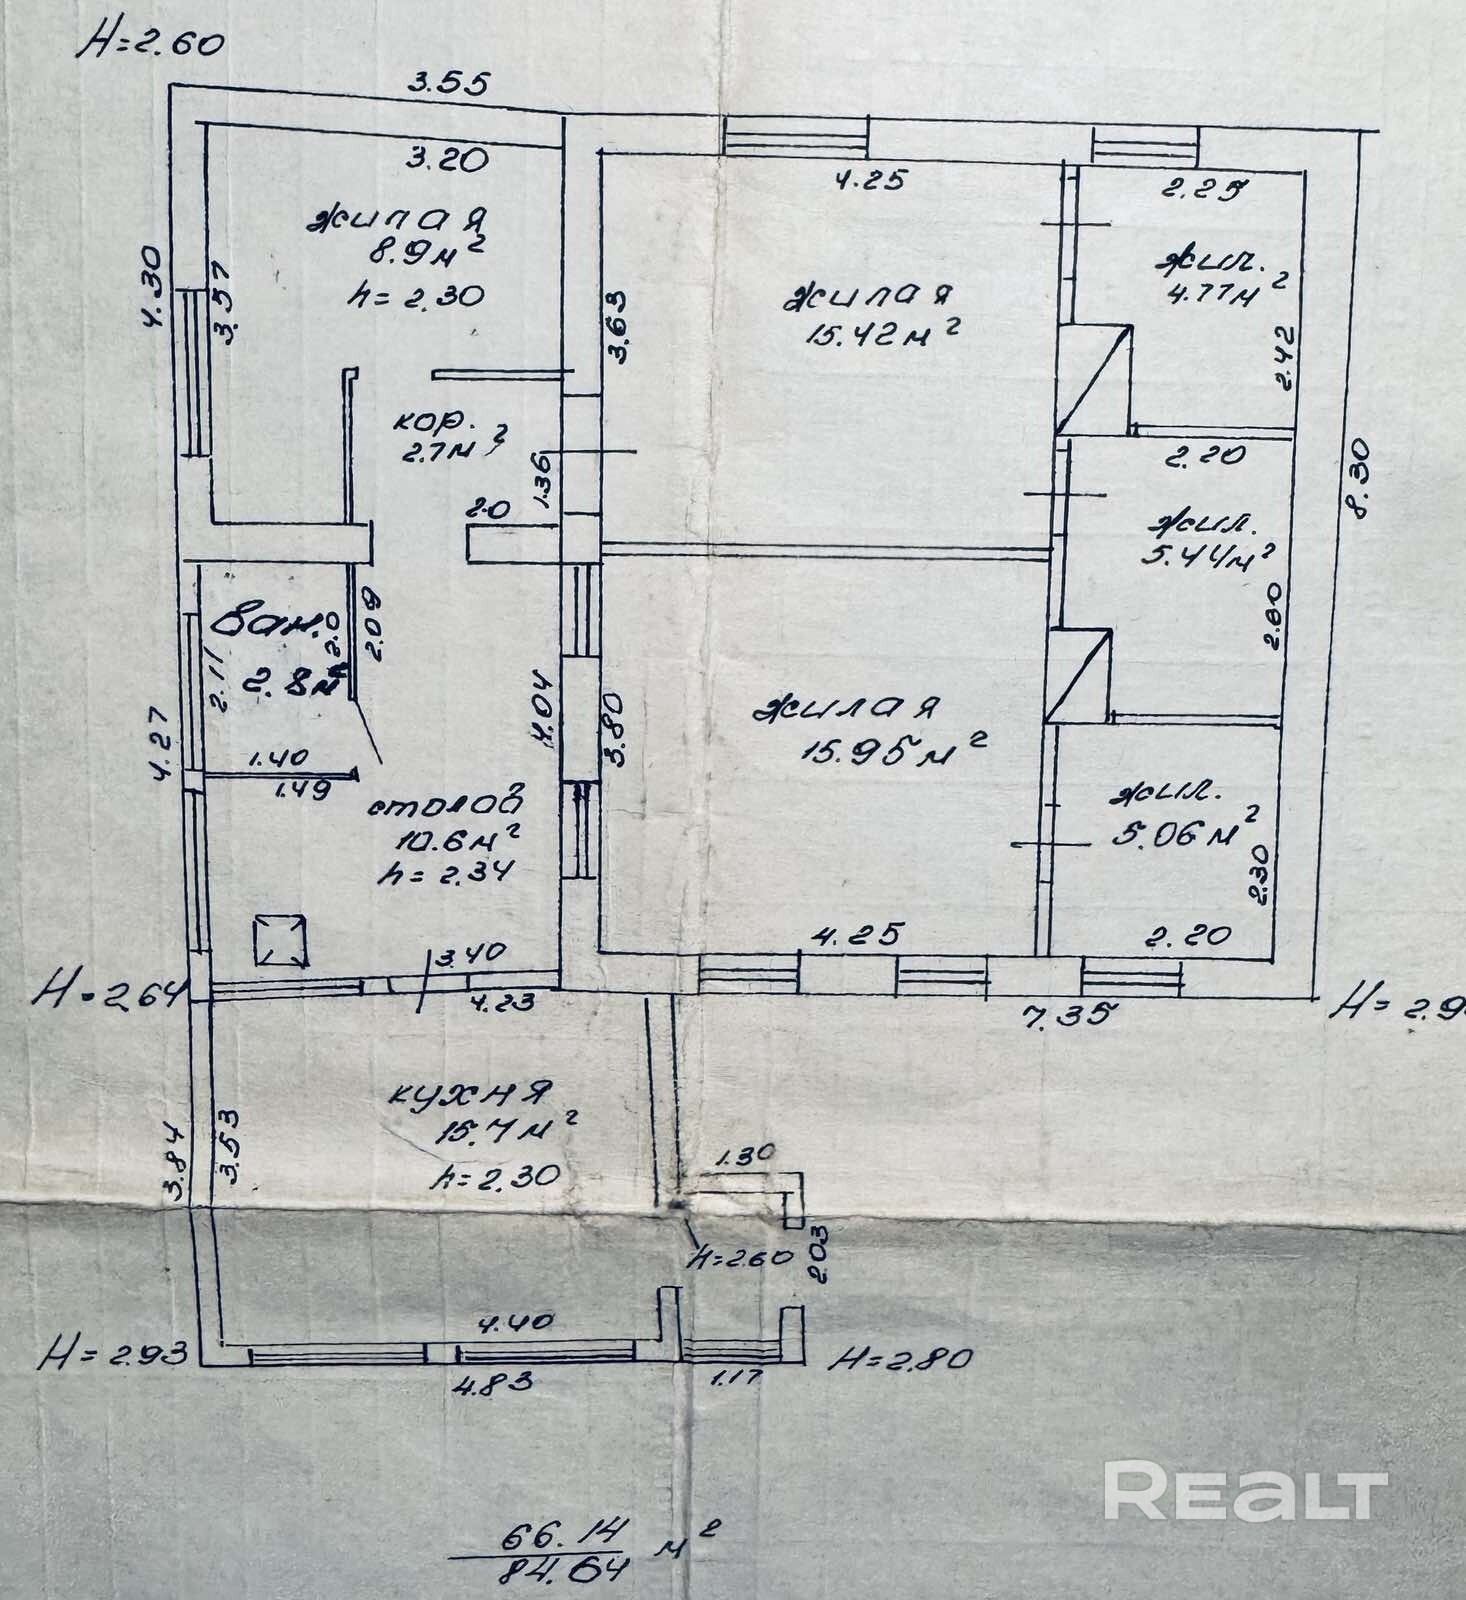 H=2.60
3.55
3.20
жилая
8.9м²
h=2.30
4.30
3.57
4.25
2.25
жилая
15.42м²
3.63
жил.
4.77м²
2.42
кор.
2.7м²
1.36
2.0
2.20
8.30
жил.
5.44м²
2.60
Ван.
2.8м²
2.0
2.09
2.11
4.27
4.04
3.80
жилая
15.95м²
1.40
1.49
столов
10.6м²
h=2.34
жил.
5.06м²
2.30
4.25
2.20
3.40
4.23
H=2.64
7.35
H=2.9
кухня
15.7м²
h=2.30
3.84
3.53
1.30
H=2.60
2.03
4.40
H=2.93
4.83
1.17
H=2.80
REALT
66.14
84.64 м²